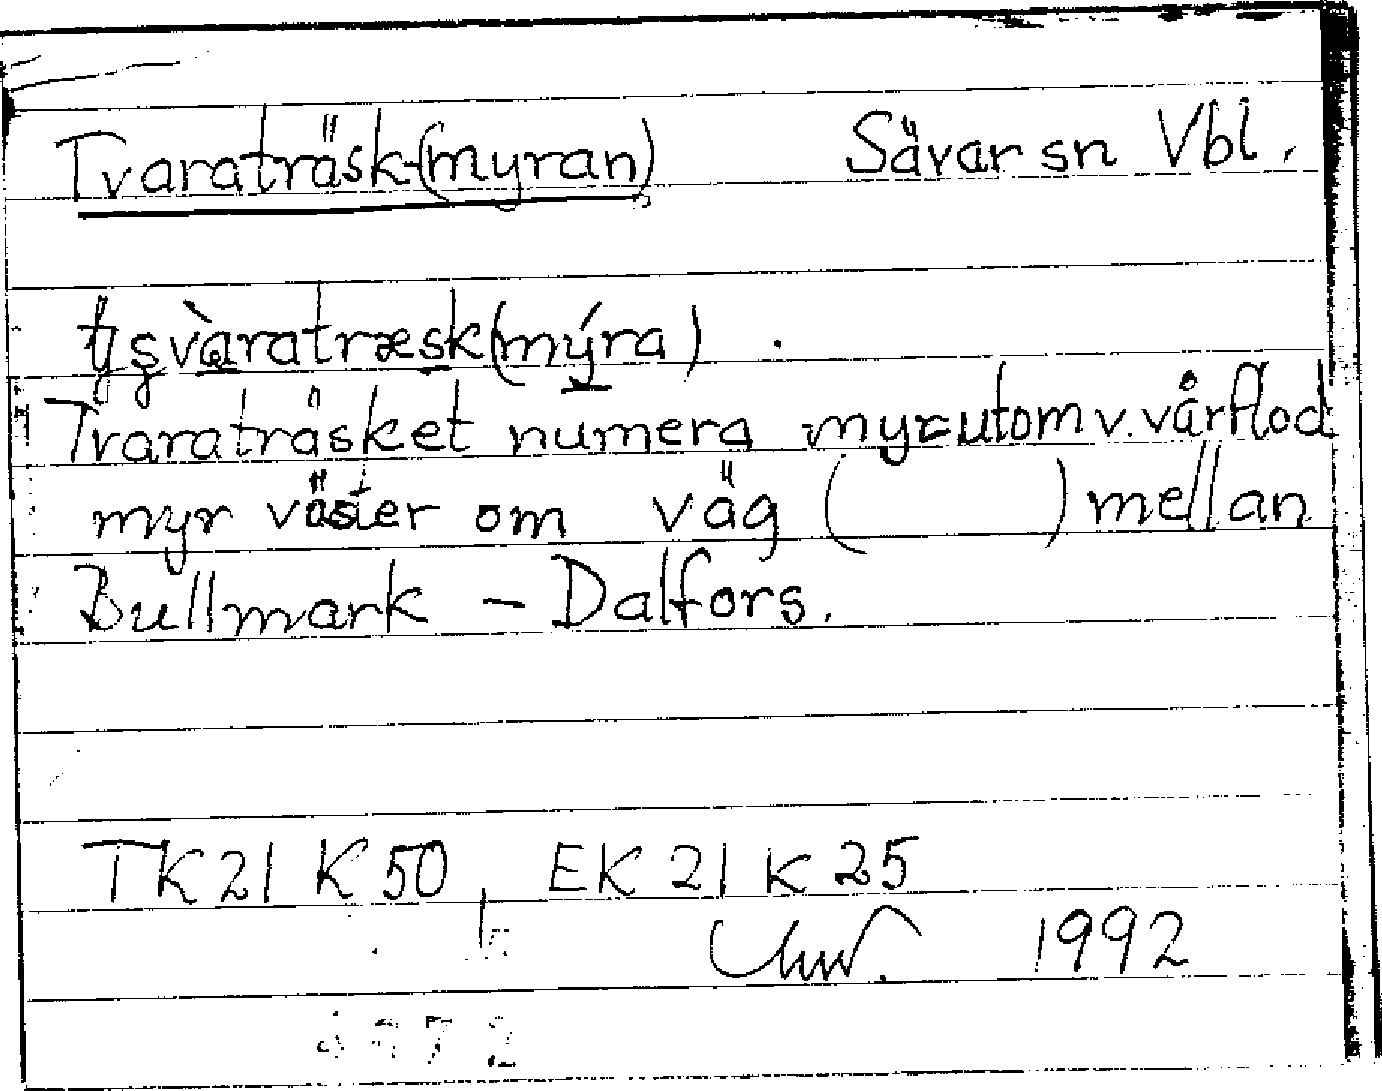 Tvaraträsk-(myran) Sävar sn Vbl.
(mýra)
Tvaraträsket numera myr utom v. vårflod
myr väster om väg ( ) mellan
Bullmark – Dalfors.
TK 21 K 50, EK 21 K 25
1992